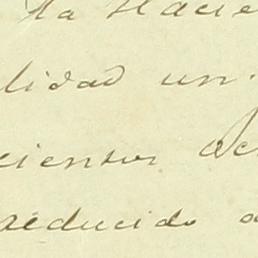 ta Hacie
lidad un
cientos oc
reducido a